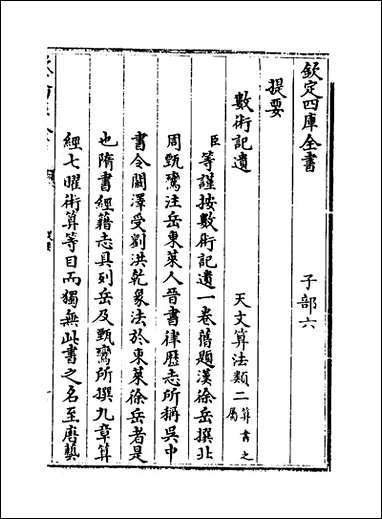 欽定四庫全書　子部六
提要
數術記遺　天文算法類二算書之屬
臣等謹按數術記遺一卷舊題漢徐岳撰北
周甄鸞注岳東萊人晉書律歴志所稱吳中
書令闞澤受劉洪乾象法於東萊徐岳者是
也隋書經籍志具列岳及甄鸞所撰九章算
經七曜術算等目而獨無此書之名至唐藝